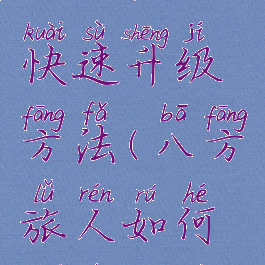 kuài sù shēng jí
快速升级
fāng fǎ bā fāng
方法(八方
lǚ rén rú hé
旅人如何